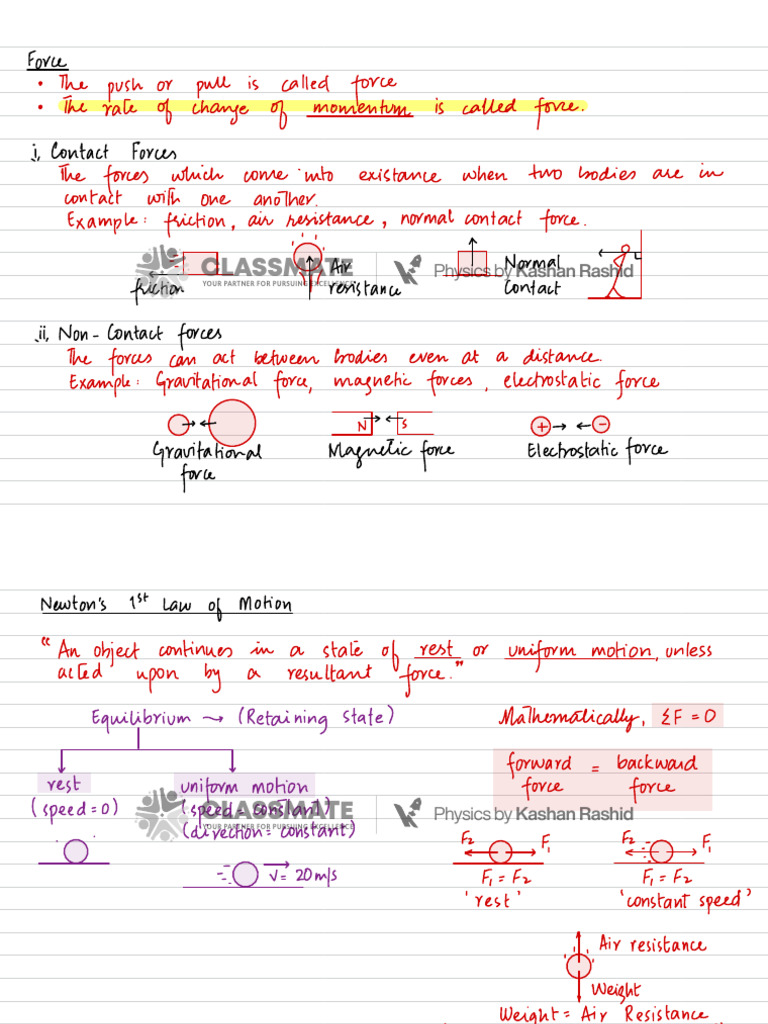 Force
• The push or pull is called force
• The rate of change of momentum is called force.
i, Contact Forces
The forces which come into existance when two bodies are in
contact with one another.
Example: friction, air resistance, normal contact force.
friction
Air
resistance
Normal
Contact
CLASSMATE
YOUR PARTNER FOR PURSUING EXCELLENCE
Physics by Kashan Rashid
ii, Non-Contact forces
The forces can act between bodies even at a distance.
Example: Gravitational force, magnetic forces, electrostatic force
N S
+ -
Gravitational
force
Magnetic force
Electrostatic force
Newton's 1st Law of Motion
"An object continues in a state of rest or uniform motion, unless
acted upon by a resultant force."
Equilibrium → (Retaining state)
rest
(speed = 0)
uniform motion
(speed = constant)
(direction = constant)
V = 20 m/s
Mathematically, ΣF = 0
forward force = backward force
CLASSMATE
YOUR PARTNER FOR PURSUING EXCELLENCE
Physics by Kashan Rashid
F2 F1
F1 = F2
'rest'
F2 F1
F1 = F2
'constant speed'
Air resistance
Weight
Weight = Air Resistance